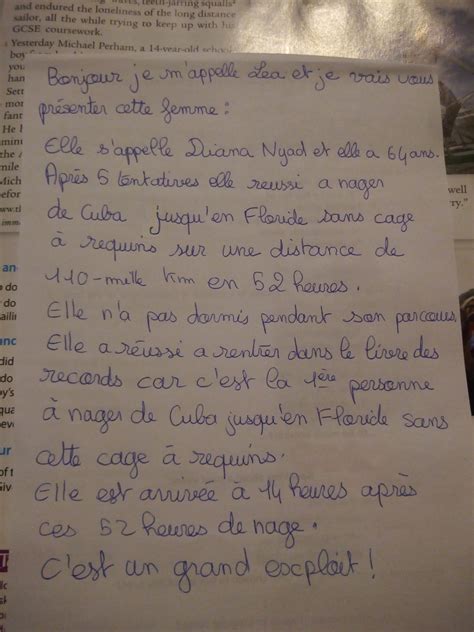 and endured the loneliness of the long distance
sailor, all while trying to keep up with his
GCSE coursework.
Yesterday Michael Perham, a 14-year-old
Bonjour je m'appelle Lea et je vais vous
présenter cette femme :
Elle s'appelle Diana Nyad et elle a 64 ans.
Après 5 tentatives elle reussi a nager
de Cuba jusqu'en Floride sans cage
à requins sur une distance de
110-mille km en 52 heures.
Elle n'a pas dormis pendant son parcours,
Elle a réussi a rentrer dans le livre des
records car c'est la 1ère personne
à nager de Cuba jusqu'en Floride sans
cette cage à requins.
Elle est arrivée à 14 heures après
ces 52 heures de nage.
C'est un grand exploit !